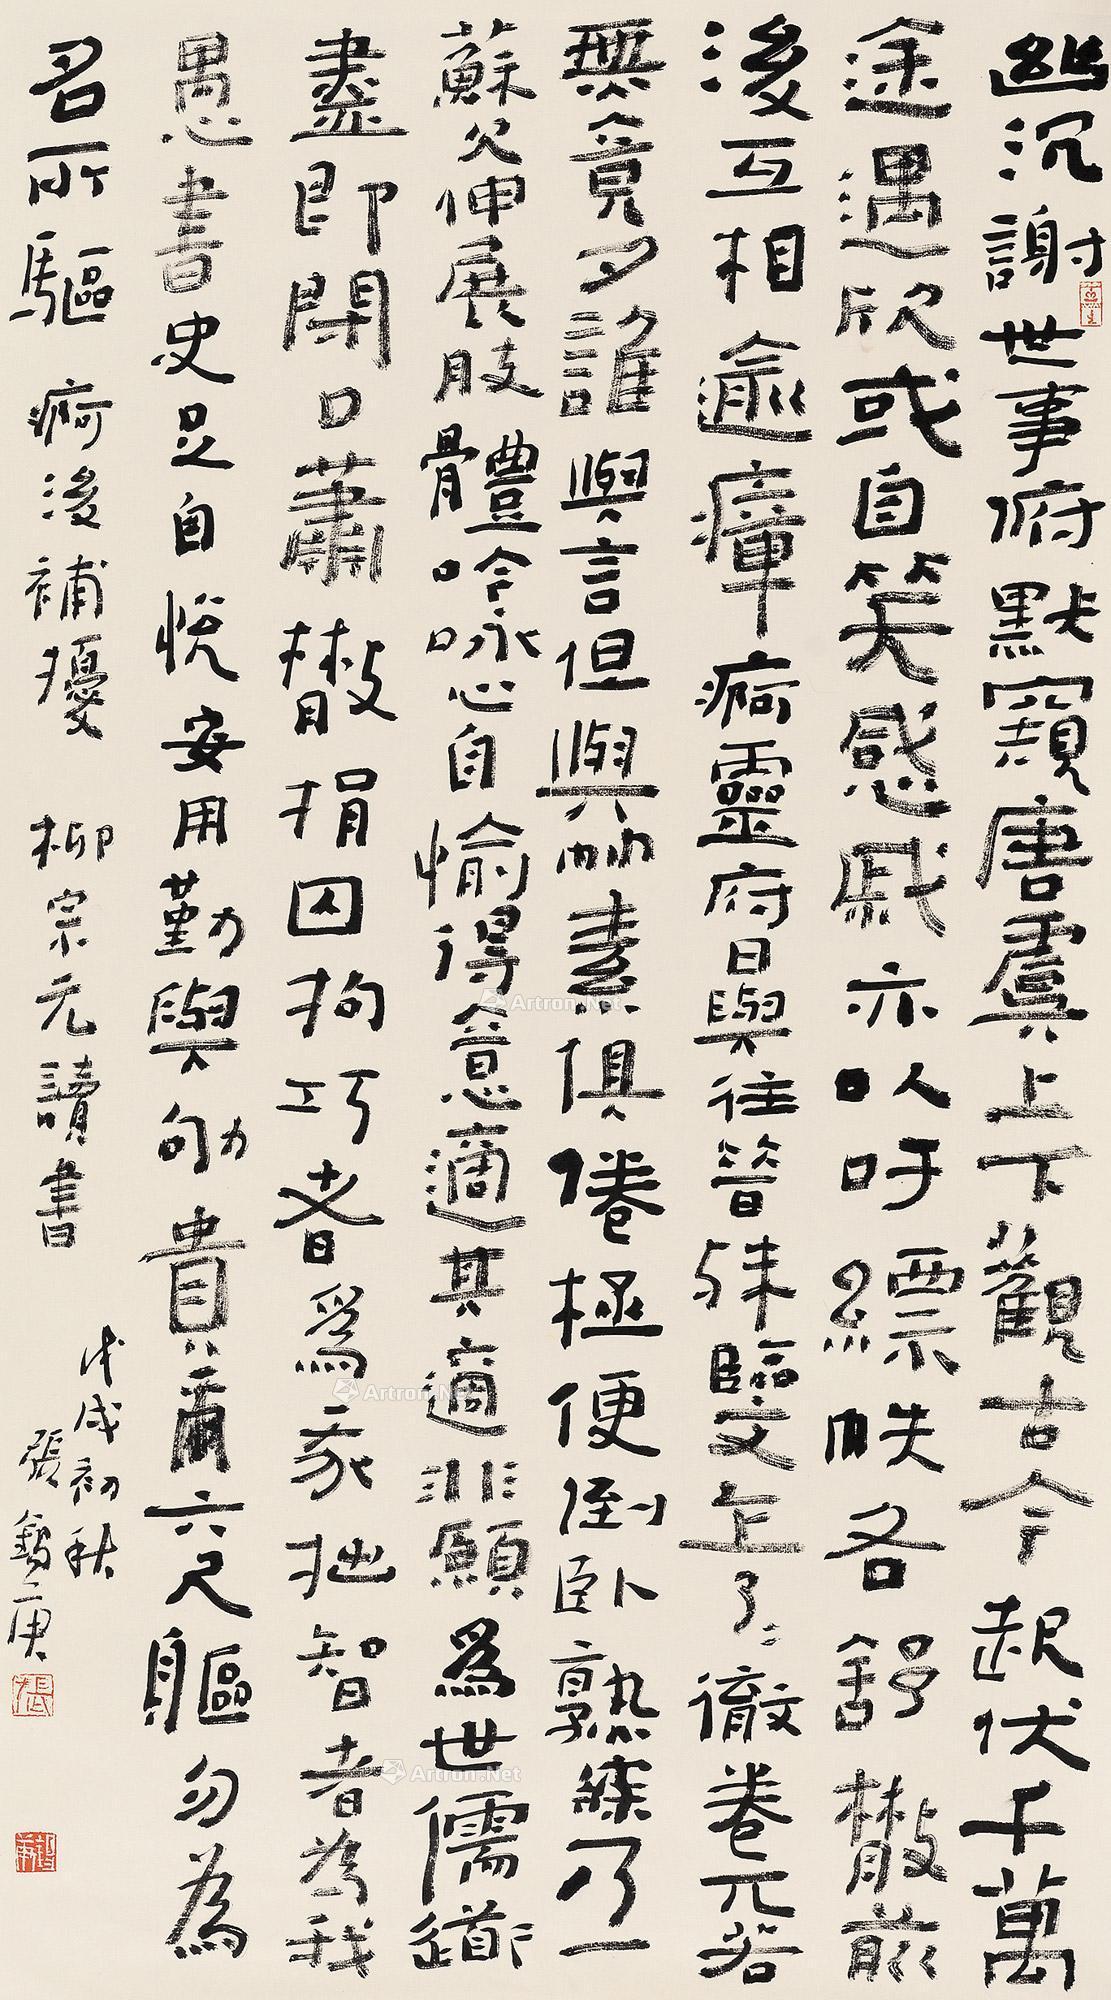 幽沉謝世事俯默窺唐虞上下觀古今起伏千萬
途遇欣或自笑感戚亦以吁縹帙各舒散前
後互相逾瘴痾靈府日與往昔殊臨文乍了〻徹卷兀若
無竟夕誰與言但與竹素俱倦極便倒臥熟寐乃一
蘇欠伸展肢體吟咏心自愉得意適其適非願爲世儒道
盡即閉口蕭散捐囚拘巧者爲我拙智者為我
愚書史足自悅安用勤與劬貴爾六尺軀勿為
名所驅 痾後補擾 柳宗元讀書
戊戌初秋
張錫庚
Artron.Net
Artron.Net
Artron.Net